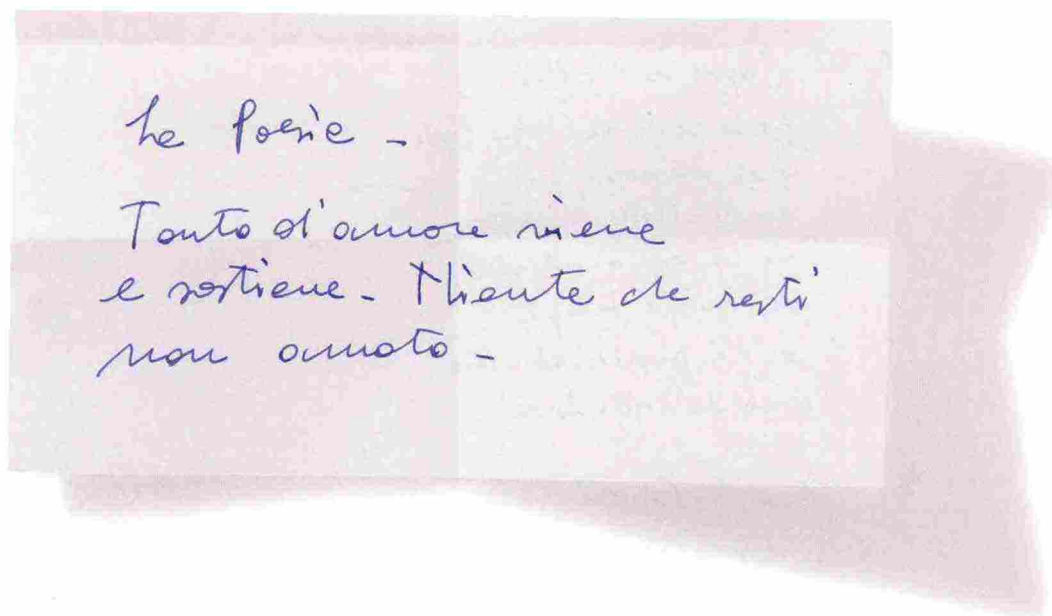 La Poesia -
Tanto d'amore viene
e sostiene - Niente che resti
non amato -